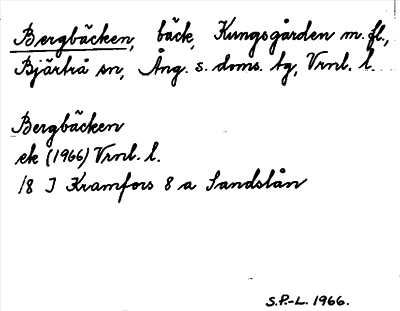 Bergbäcken, bäck, Kungsgården m. fl.,
Bjärtrå sn, Ång. s. doms. tg, Vrnl. l.
Bergbäcken
ek (1966) Vrnl. l.
18 I Kramfors 8 a Sandslån
S.P.-L. 1966.